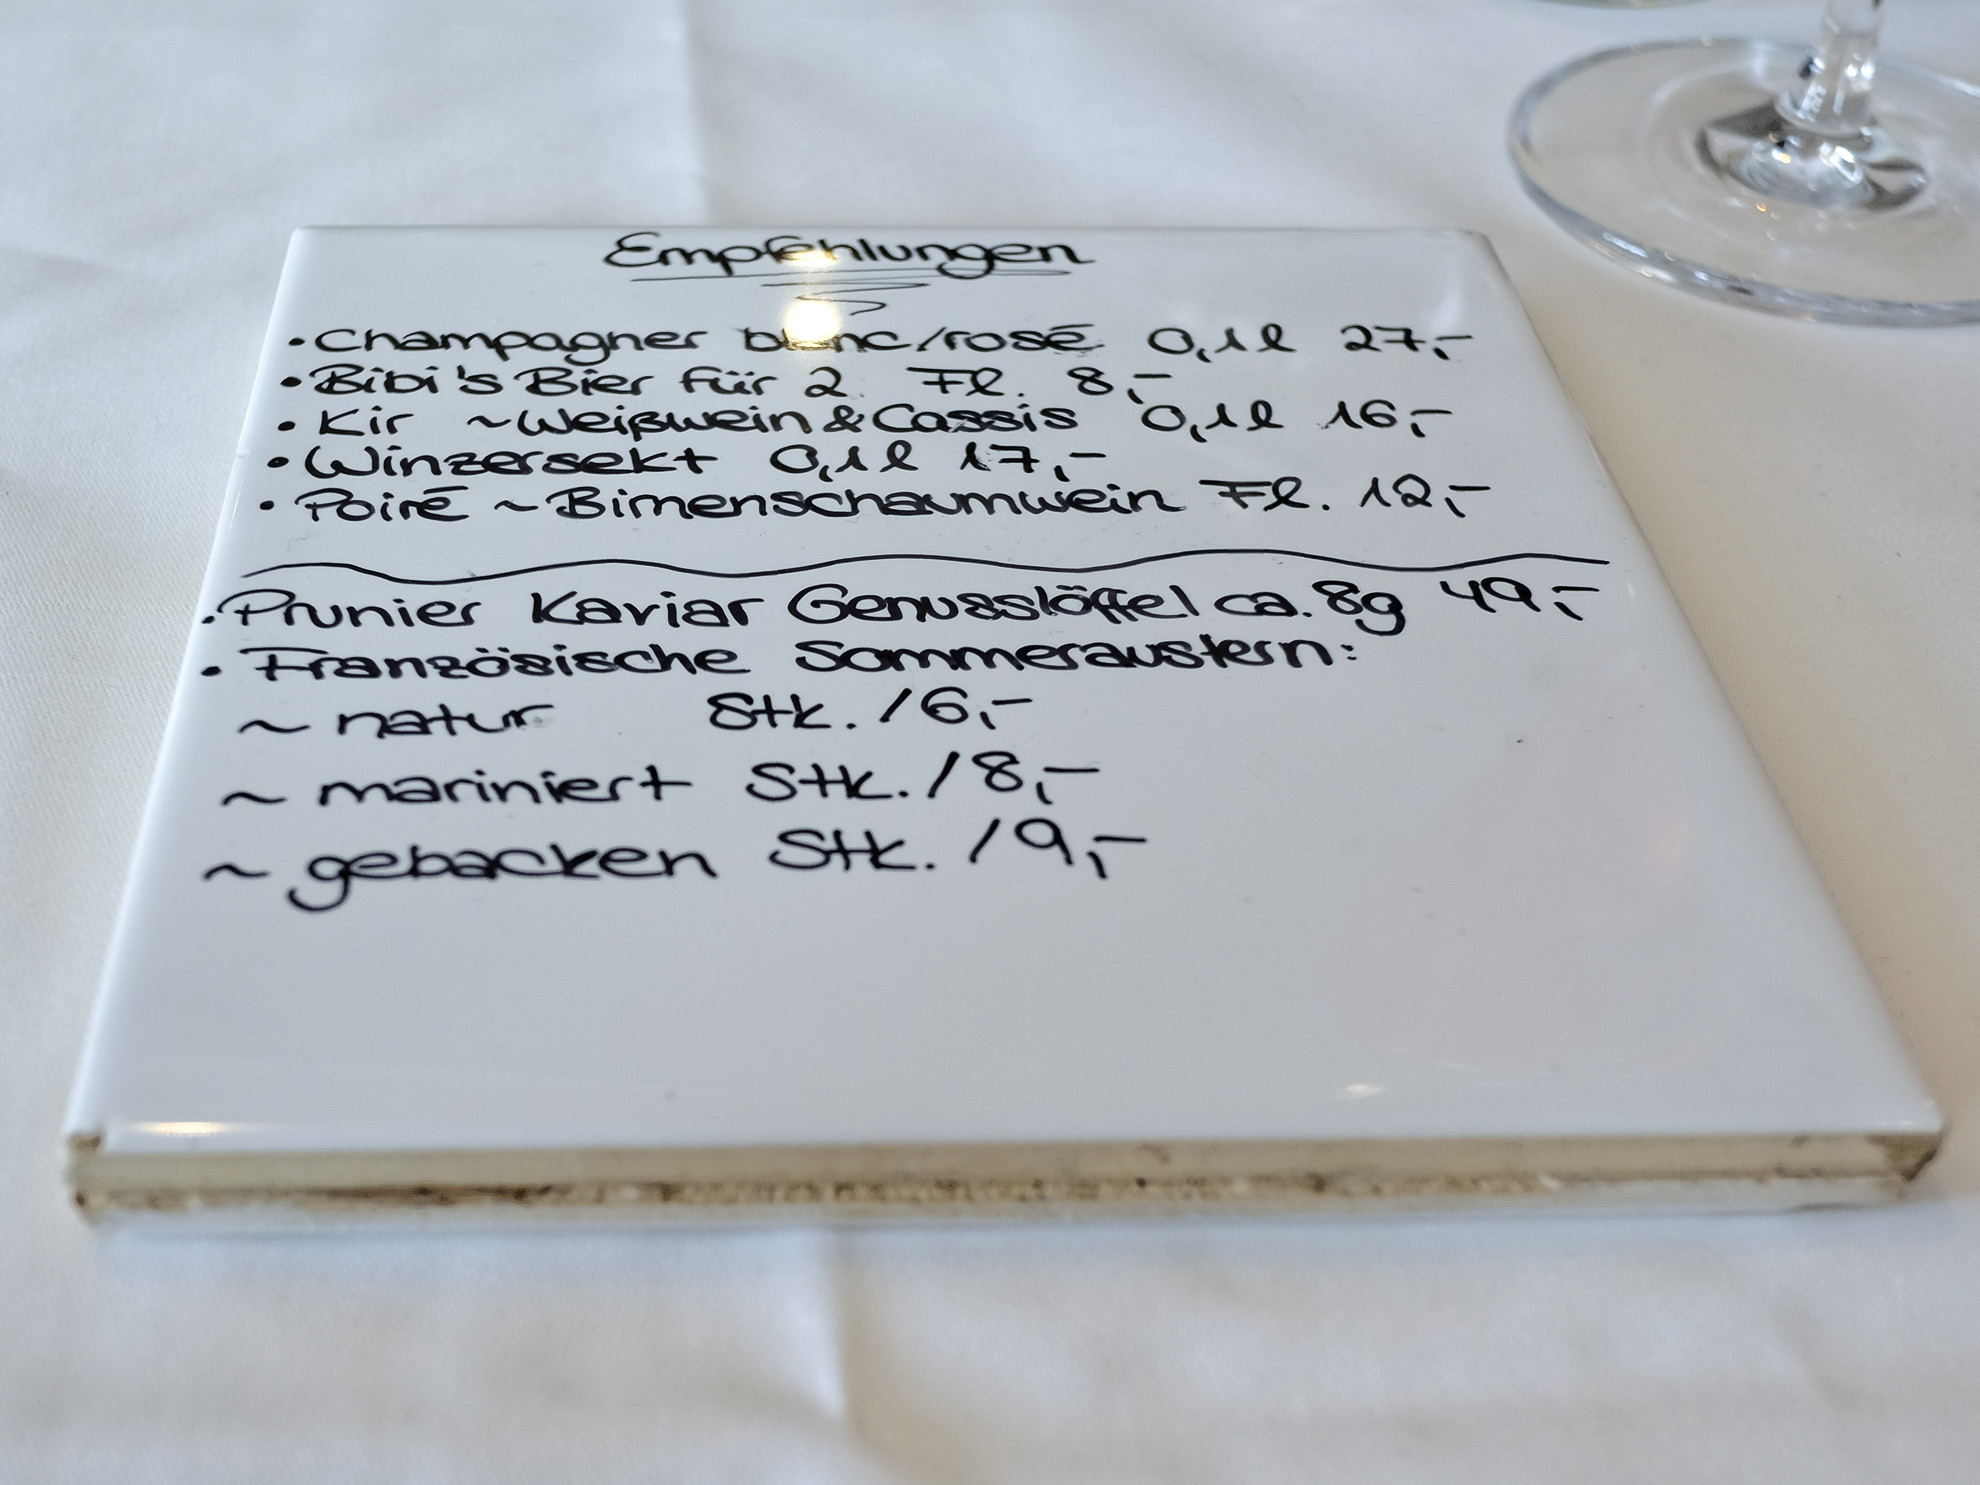 Empfehlungen
• Champagner blanc/rosé 0,1l 27,-
• Bibi's Bier für 2 Fl. 8,-
• Kir ~Weißwein & Cassis 0,1l 16,-
• Winzersekt 0,1l 17,-
• Poiré ~ Birnenschaumwein Fl. 12,-
• Prunier Kaviar Genusslöffel ca. 8g 49,-
• Französische Sommeraustern:
~ natur Stk. /6,-
~ mariniert Stk. /8,-
~ gebacken Stk. /9,-